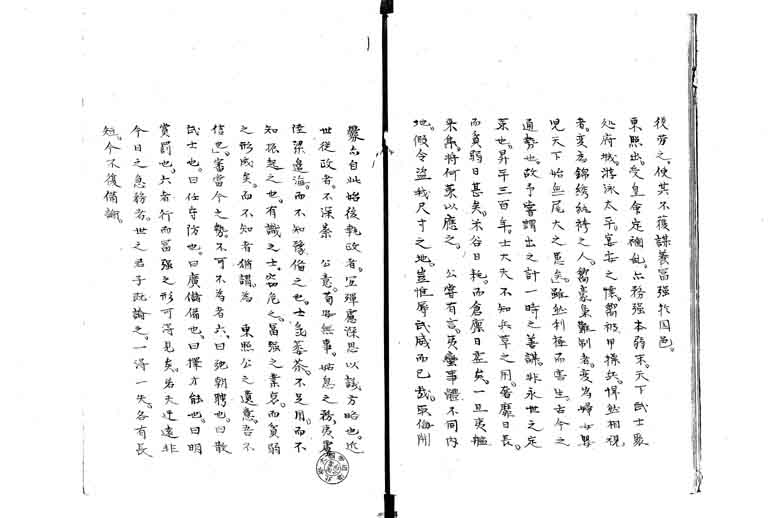 後労之、使其不獲謀養冨强於国邑。
東照出、受皇命定禍乱、亦務强本弱末、天下武士聚
処府城、游泳太平、宴安之懐、嚮被甲操兵、悍然相視
者、変為錦綉紈袴之人、嚮豪梟難制者、変為婦女嬰
児、天下始無尾大之患矣。雖然利極而害生、古今之
通勢也、故予審謂出之計一時之善謀、非永世之定
策也。昇平三百年、士大夫不知兵革之用、奢靡日長、
而貧弱日甚矣。米谷日耗、而倉廩日虚矣。一旦夷艦
来窺、将何策以応之。公害有言、夷蛮事體不同内
地、假令盗我尺寸之地、豈惟辱武威而已哉。取侮
釁亦自此始、後執政者、宜殫慮深思以設方略也。近
世従政者、不深 公意、苟為無事、姑息之務、夷虜
陸梁邉海、而不知豫備之也。士氣萎苶不足用、而不
知振起之也。有識之士、窃危之。冨强之業衰、而貧弱
之形成矣。而不知者猶謂為 東照公之遺意、吾不
信也。審當今之勢、不可不為者六、曰弛朝聘也、曰散
武士也、曰任守防也、曰廣儲備也、曰擇才能也、曰明
賞罰也、六者行而冨强之形可得見矣。若夫迂遠非
今日之急務者、世之君子既論之、一得一失、各有長
短、今不復備論。